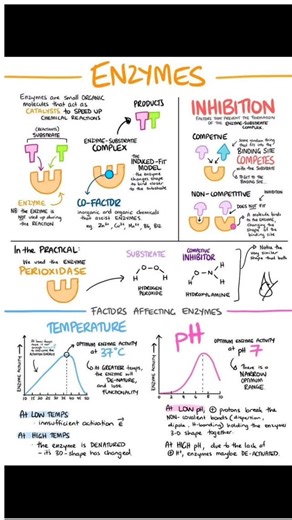 ENZYMES
Enzymes are small ORGANIC
molecules that act as
CATALYSTS to SPEED UP
CHEMICAL REACTIONS
(REACTANTS)
SUBSTRATE
ENZYME
NB the ENZYME is
not used up during
the REACTION
PRODUCTS
ENZYME-SUBSTRATE
COMPLEX
The INDUCED-FIT
MODEL
the enzyme
changes shape
to bind
to the substrate
CO-FACTOR
inorganic and organic chemicals
that assist ENZYMES.
INHIBITION
FACTORS THAT PREVENT THE FORMATION
OF THE ENZYME-SUBSTRATE
COMPLEX.
COMPETIVE
BINDING SITE
COMPETES
with the SUBSTRATE
to get to the
BINDING SITE.
NON-COMPETITIVE
INHIBITION
DOES NOT FIT
A molecule binds
to the ENZYME,
changing the
shape of the
binding site
In the PRACTICAL:
We used the ENZYME
PERIOXIDASE
SUBSTRATE
HYDROGEN
PEROXIDE
COMPETITIVE
INHIBITOR
HYDROXYLAMINE
Notice the
very similar
shape that both
FACTORS AFFECTING ENZYMES
TEMPERATURE
ENZYME ACTIVITY
OPTIMUM ENZYME ACTIVITY
at 37°C
At GREATER temps,
the ENZYME will
DE-NATURE,
and LOSE
FUNCTIONALITY
At LOW TEMPS
- insufficient activation E
At HIGH TEMPS
- the enzyme is DENATURED
- its 3D-shape has changed.
pH
ENZYME ACTIVITY
OPTIMUM ENZYME ACTIVITY
at pH 7
There is a
NARROW
OPTIMUM
RANGE
At LOW pH, ⊕ protons break the
NON-covalent bonds (dispersion,
dipole, H-bonding) holding the enzyme
3-D shape together.
At HIGH pH, due to the lack of
⊕ H⁺, enzymes maybe DE-ACTIVATED.